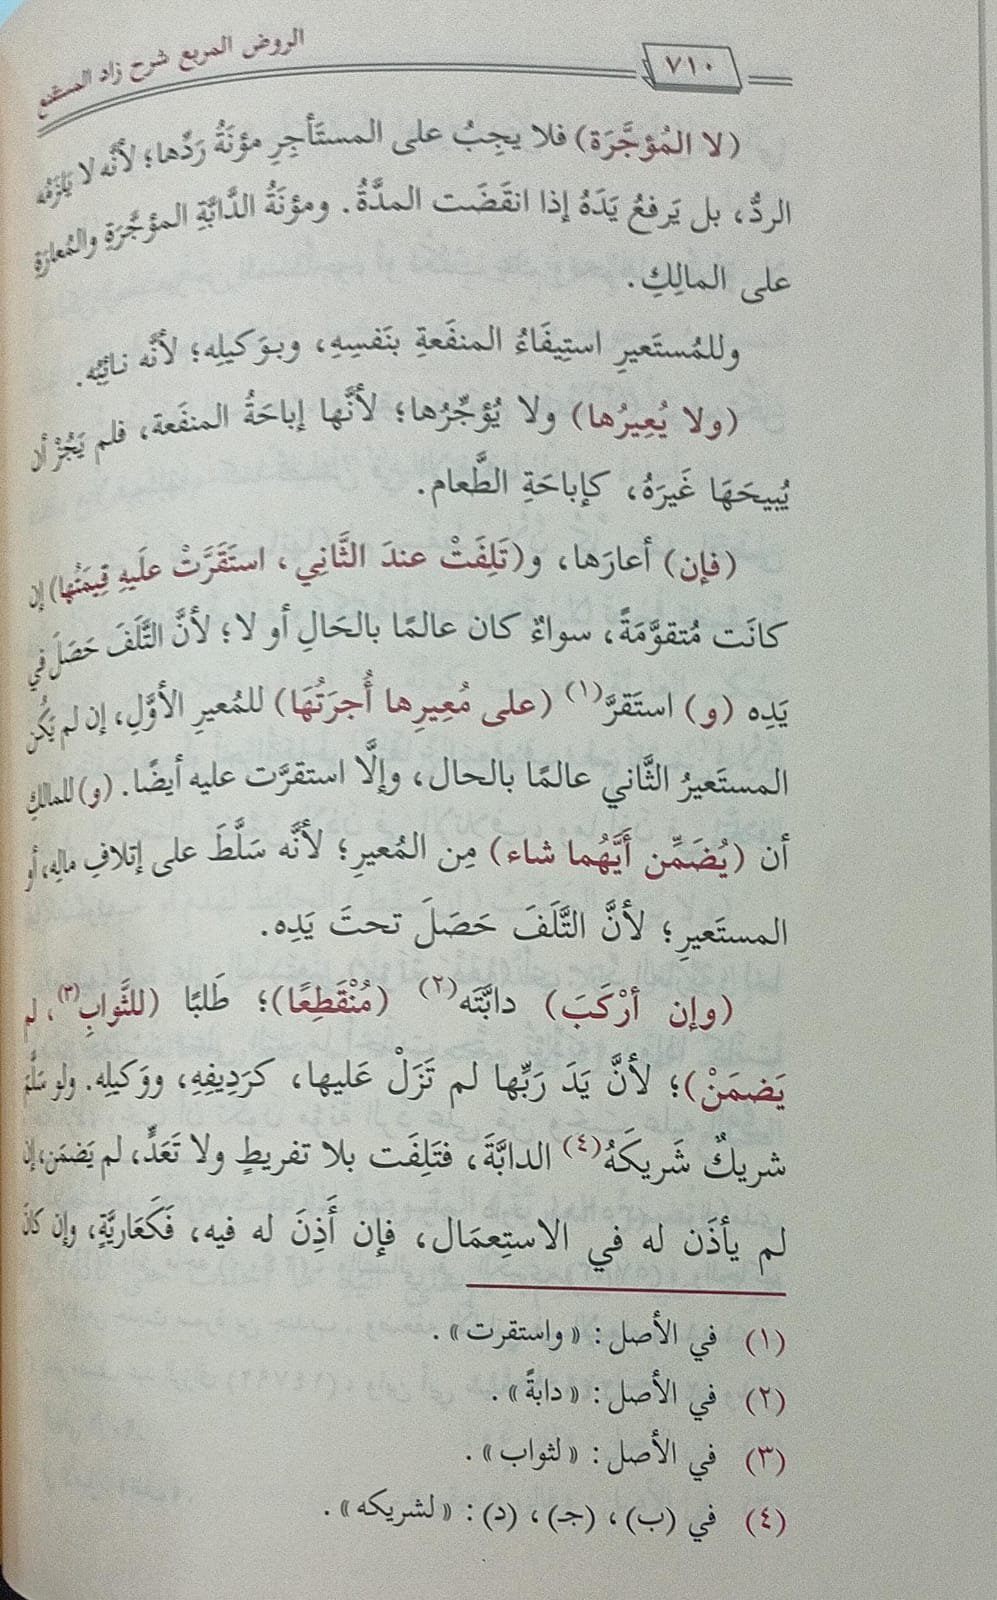 الروض المربع شرح زاد المستقنع
٧١٠
(لا المُؤجَّرَة) فلا يجِبُ على المستَأجِرِ مؤنَةُ رَدِّها؛ لأنَّه لا يَلزَمُه
الردُّ، بل يَرفعُ يَدَهُ إذا انقَضَت المدَّةُ. ومؤنَةُ الدَّابَّةِ المؤجَّرَةِ والمُعارَةِ
على المالِكِ.
وللمُستَعيرِ استِيفَاءُ المنفَعةِ بنَفسِهِ، وبوَكيلِه؛ لأنَّه نائِبُه.
(ولا يُعِيرُها) ولا يُؤجِّرُها؛ لأنَّها إباحَةُ المنفَعة، فلم يَجُزْ أن
يُبيحَهَا غَيرَهُ، كإباحَةِ الطَّعام.
(فإن) أعارَها، و(تَلِفَتْ عندَ الثَّانِي، استَقَرَّتْ علَيهِ قِيمَتُها) إن
كانَت مُتقوَّمَةً، سواءٌ كان عالمًا بالحَالِ أو لا؛ لأنَّ التَّلَفَ حَصَلَ في
يَدِه (و) استَقرَّ(١) (على مُعِيرِها أُجرَتُهَا) للمُعيرِ الأوَّلِ، إن لم يَكُن
المستَعيرُ الثَّاني عالمًا بالحال، وإلَّا استقرَّت عليه أيضًا. (و) للمالكِ
أن (يُضَمِّن أَيَّهُما شاء) مِن المُعيرِ؛ لأنَّه سَلَّطَ على إتلافِ مالِه، أو
المستَعيرِ؛ لأنَّ التَّلَفَ حَصَلَ تحتَ يَدِه.
(وإن أرْكَبَ) دابَّتَه(٢) (مُنْقَطِعًا)؛ طَلبًا (للثَّوابِ(٣)، لم
يَضمَنْ)؛ لأنَّ يَدَ رَبِّها لم تَزَلْ عَليها، كرَدِيفِهِ، ووَكيلِه. ولو سَلَّمَ
شريكٌ شَريكَهُ(٤) الدابَّةَ، فتَلِفَت بلا تفريطٍ ولا تَعَدٍّ، لم يَضمَن، إن
لم يأذَن له في الاستِعمَال، فإن أَذِنَ له فيه، فَكَعَاريَّةٍ، وإن كانَ
(١) في الأصل: «واستقرت».
(٢) في الأصل: «دابةً».
(٣) في الأصل: «لثواب».
(٤) في (ب)، (جـ)، (د): «لشريكه».